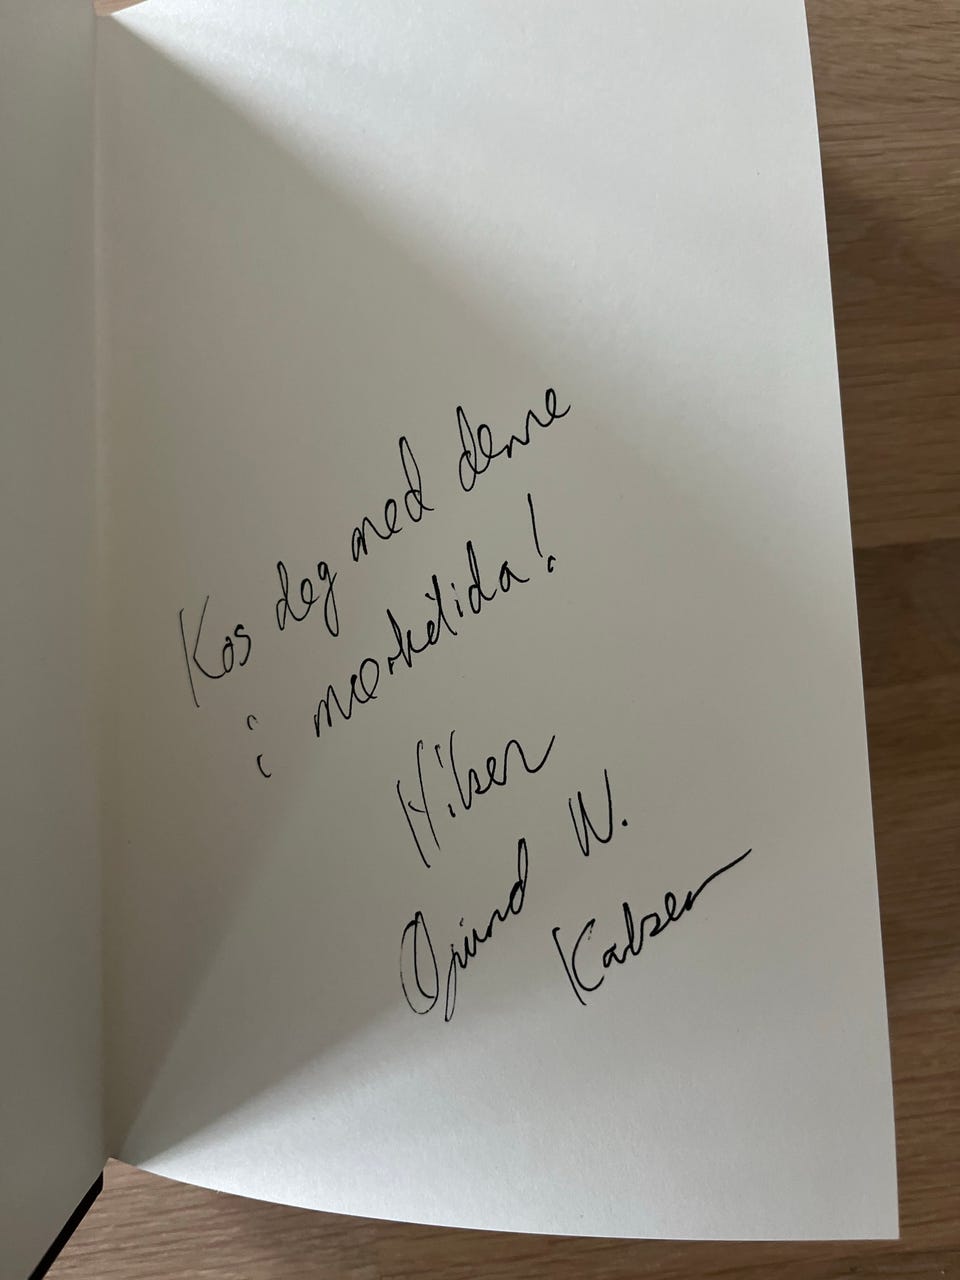 Kos deg med denne
i mørketida!
Hilsen
Øjvind W.
Karlsen